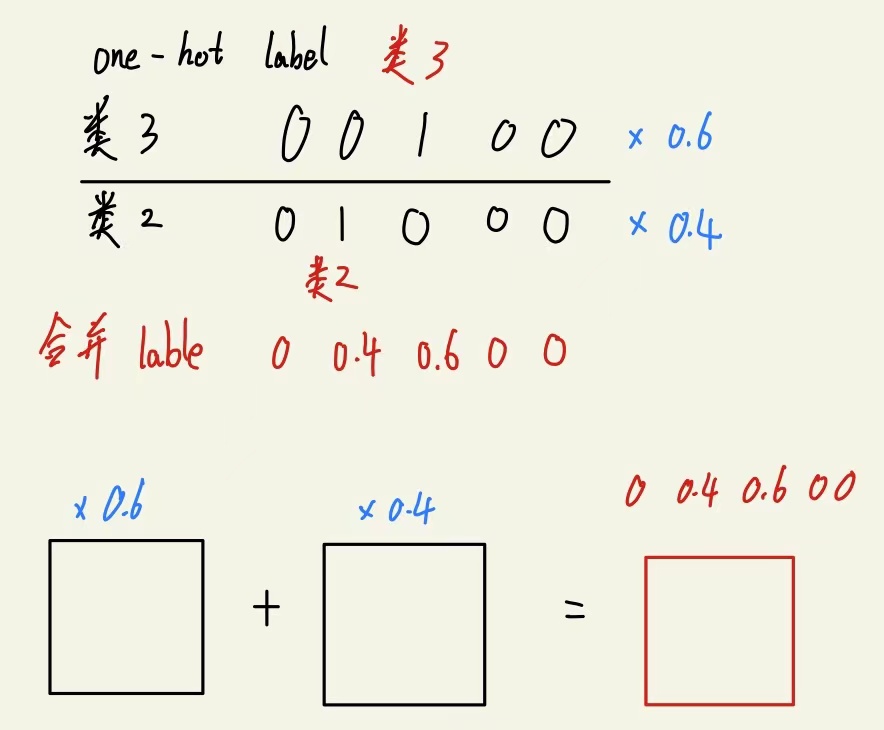 one-hot label 类3
类3 0 0 1 0 0 × 0.6
类2 0 1 0 0 0 × 0.4
类2
合并 lable 0 0.4 0.6 0 0
× 0.6 × 0.4 0 0.4 0.6 0 0
+ =